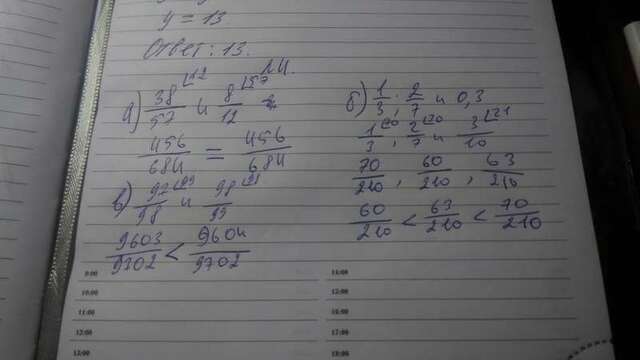 y = 13.
Ответ: 13.
а) 38/57 и 8/12
456/684 = 456/684
в) 97/98 и 98/99
9603/9302 < 9604/9702
б) 1/3; 2/7 и 0,3
1/3, 2/7 и 3/10
70/210, 60/210, 63/210
60/210 < 63/210 < 70/210
9:00
10:00
11:00
12:00
13:00
15:00
16:00
17:00
18:00